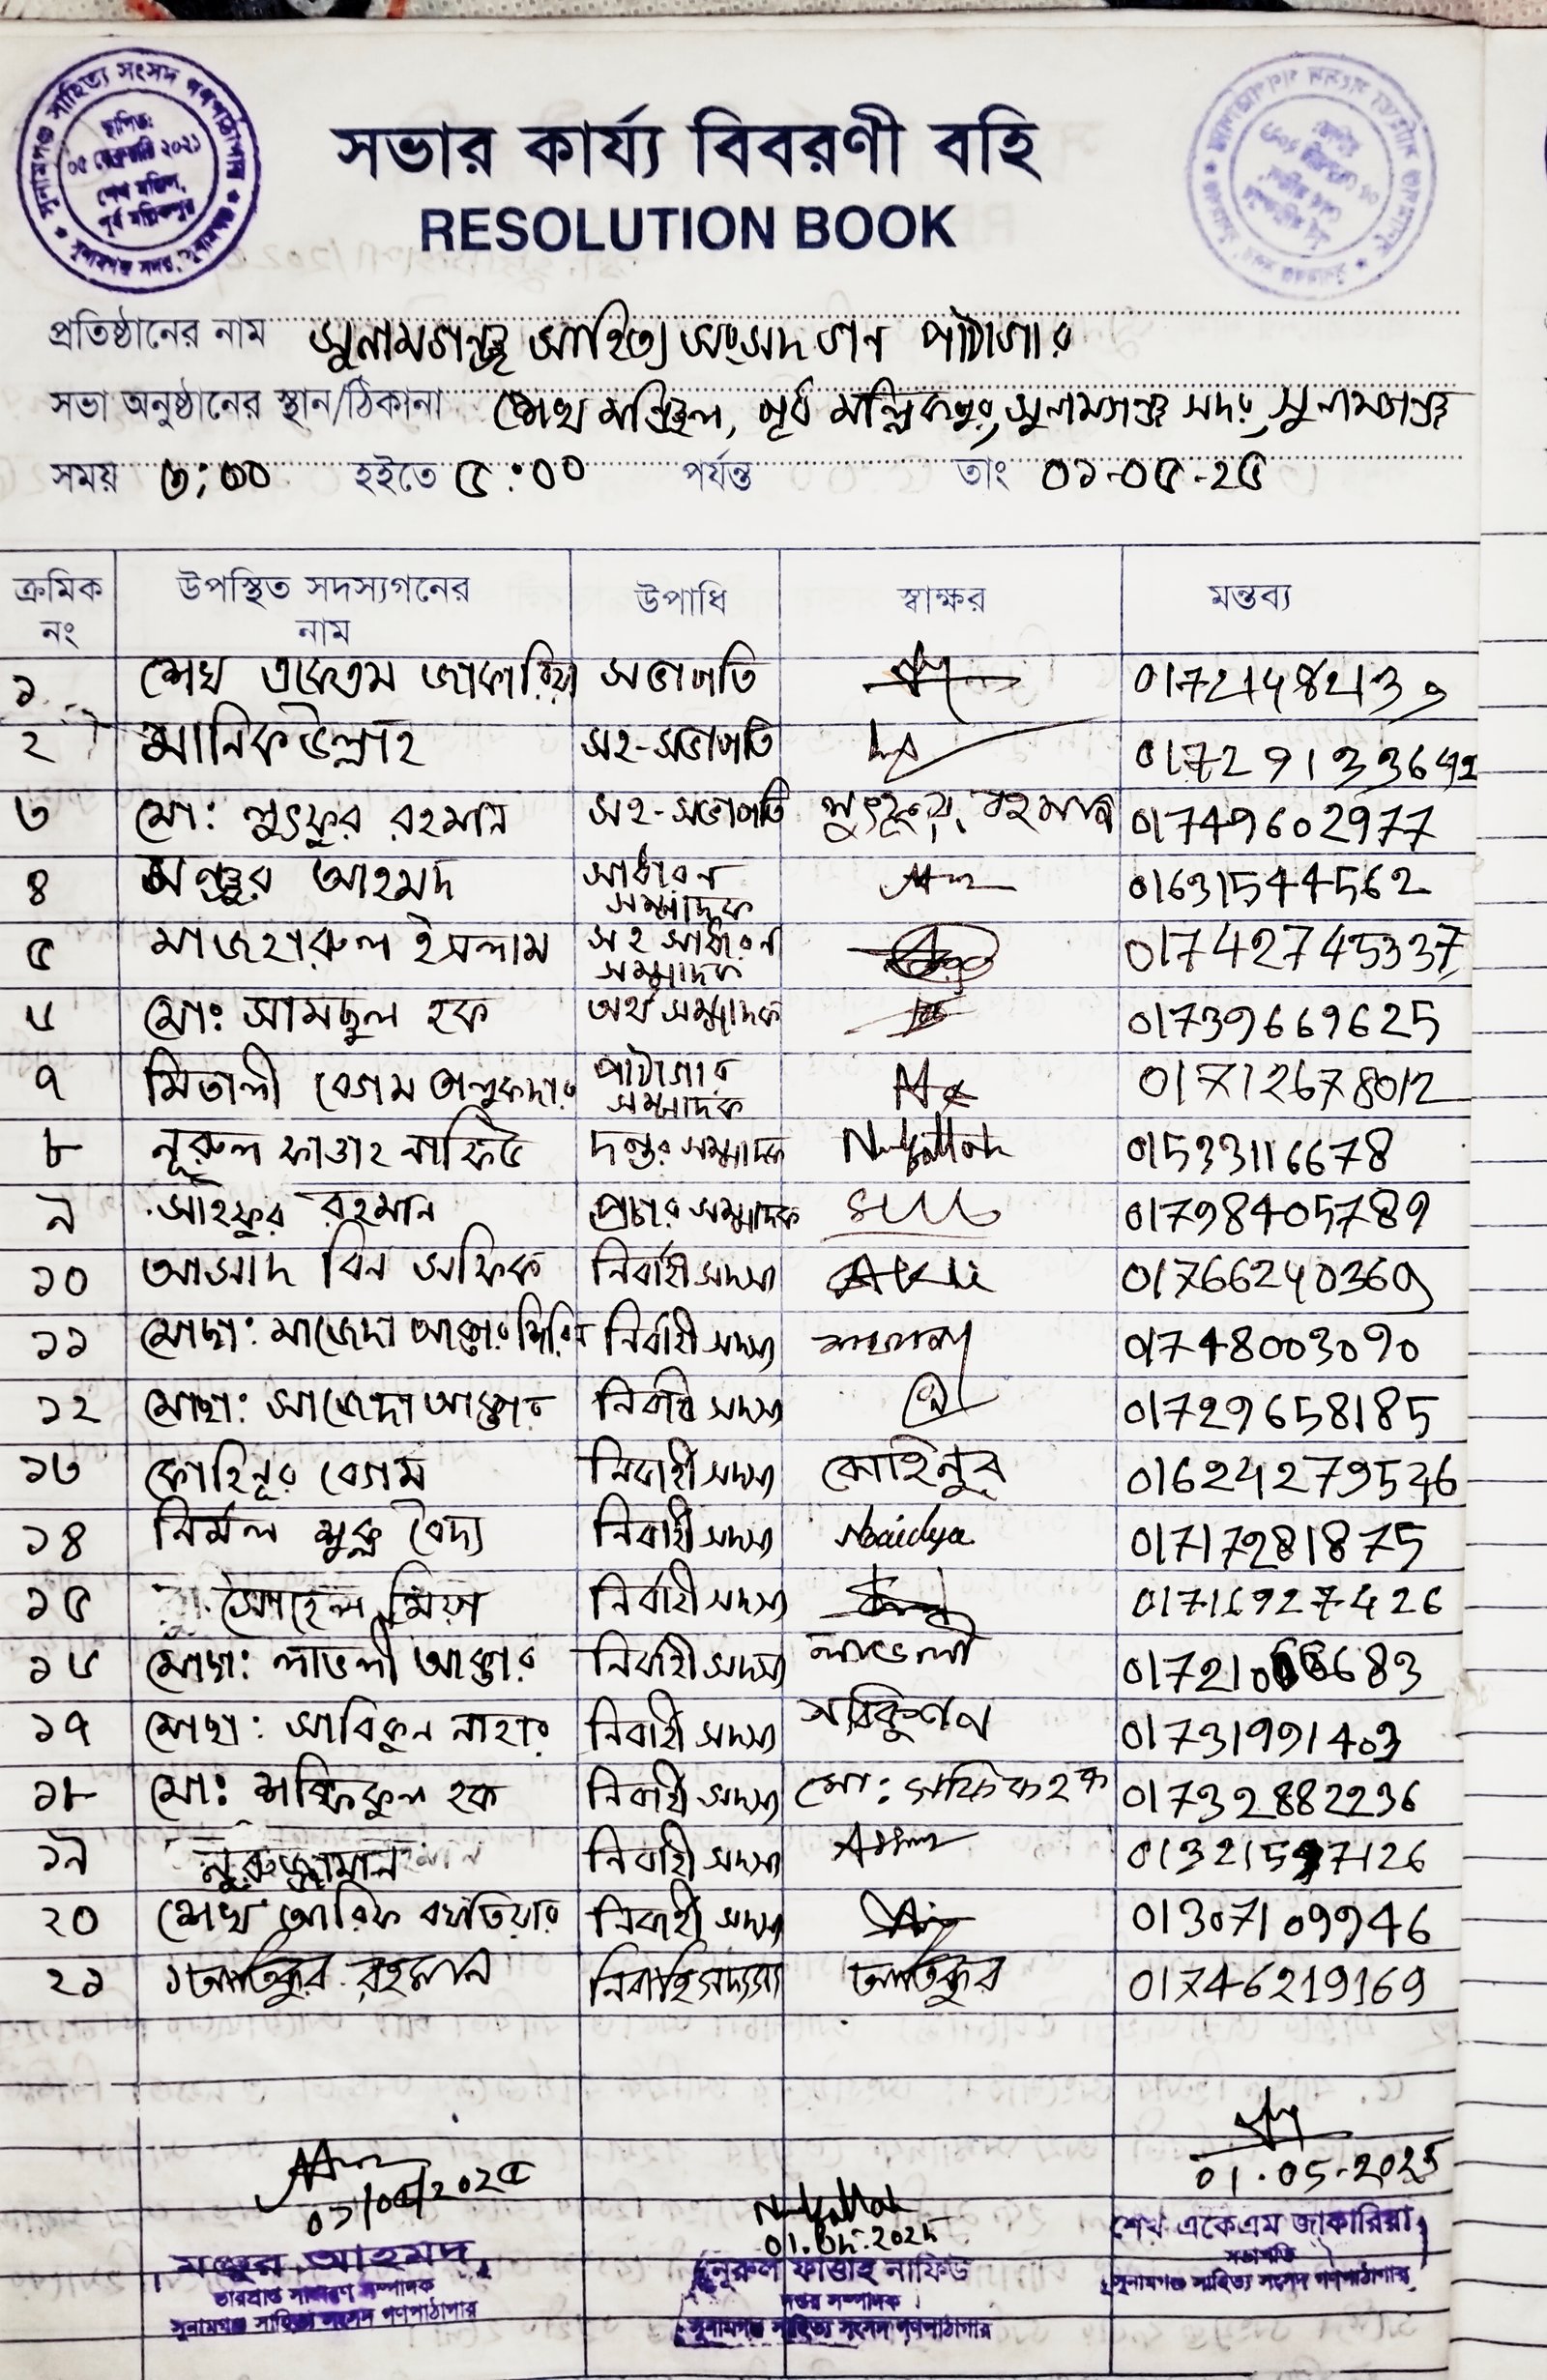 সুনামগঞ্জ সাহিত্য সংসদ গণপাঠাগার
স্থাপিত:
০৫ ফেব্রুয়ারি ২০২১
শেখ মঞ্জিল,
পূর্ব মল্লিকপুর
সুনামগঞ্জ সদর, সুনামগঞ্জ
সভার কার্য্য বিবরণী বহি
RESOLUTION BOOK
প্রতিষ্ঠানের নাম সুনামগঞ্জ সাহিত্য সংসদ গন পাঠাগার
সভা অনুষ্ঠানের স্থান/ঠিকানা শেখ মঞ্জিল, পূর্ব মল্লিকপুর, সুনামগঞ্জ সদর, সুনামগঞ্জ
সময় ৩:০০ হইতে ৫:০০ পর্যন্ত তাং ০১-০৫-২৫
ক্রমিক নং উপস্থিত সদস্যগনের নাম উপাধি স্বাক্ষর মন্তব্য
১ শেখ একেএম জাকারিয়া সভাপতি
২ মানিকউল্লাহ সহ-সভাপতি
৩ মো: লুৎফুর রহমান সহ-সভাপতি লুৎফুর রহমান 01749602977
৪ মঞ্জুর আহমদ সাধারন সম্পাদক 01631544562
৫ মাজহারুল ইসলাম সহ সাধারন সম্পাদক 01742745337
৬ মো: সামছুল হক অর্থ সম্পাদক 01739669625
৭ মিতালী বেগম তালুকদার পাঠাগার সম্পাদক 01712678012
৮ নূরুল ফাত্তাহ নাফিউ দপ্তর সম্পাদক 01533116678
৯ সাইফুর রহমান প্রচার সম্পাদক 01798405789
১০ আসাদ বিন সফিক নির্বাহী সদস্য 01766240369
১১ মোছা: মাজেদা আক্তার শিরিন নির্বাহী সদস্য 01748003090
১২ মোছা: সাজেদা আক্তার নির্বাহী সদস্য 01729658185
১৩ কোহিনূর বেগম নির্বাহী সদস্য কোহিনুর
১৪ নির্মল শুক্ল বৈদ্য নির্বাহী সদস্য Nbaidya 01717281875
১৫ সোহেল মিয়া নির্বাহী সদস্য 01716927426
১৬ মোছা: লাভলী আক্তার নির্বাহী সদস্য লাভলী
১৭ মোছা: সাবিকুন নাহার নির্বাহী সদস্য 01731991403
১৮ মো: শফিকুল হক নির্বাহী সদস্য মো: সফিক হক 01732882236
১৯ নুরুজ্জামান নির্বাহী সদস্য
২০ শেখ আরিফ বখতিয়ার নির্বাহী সদস্য 01307109946
২১ আতিকুর রহমান নির্বাহি সদস্য আতিকুর 01746219169
01.05.2025
01.05.2025
মঞ্জুর আহমদ
ভারপ্রাপ্ত সাধারণ সম্পাদক
সুনামগঞ্জ সাহিত্য সংসদ গণপাঠাগার
নূরুল ফাত্তাহ নাফিউ
দপ্তর সম্পাদক
সুনামগঞ্জ সাহিত্য সংসদ গণপাঠাগার
শেখ একেএম জাকারিয়া
সভাপতি
সুনামগঞ্জ সাহিত্য সংসদ গণপাঠাগার